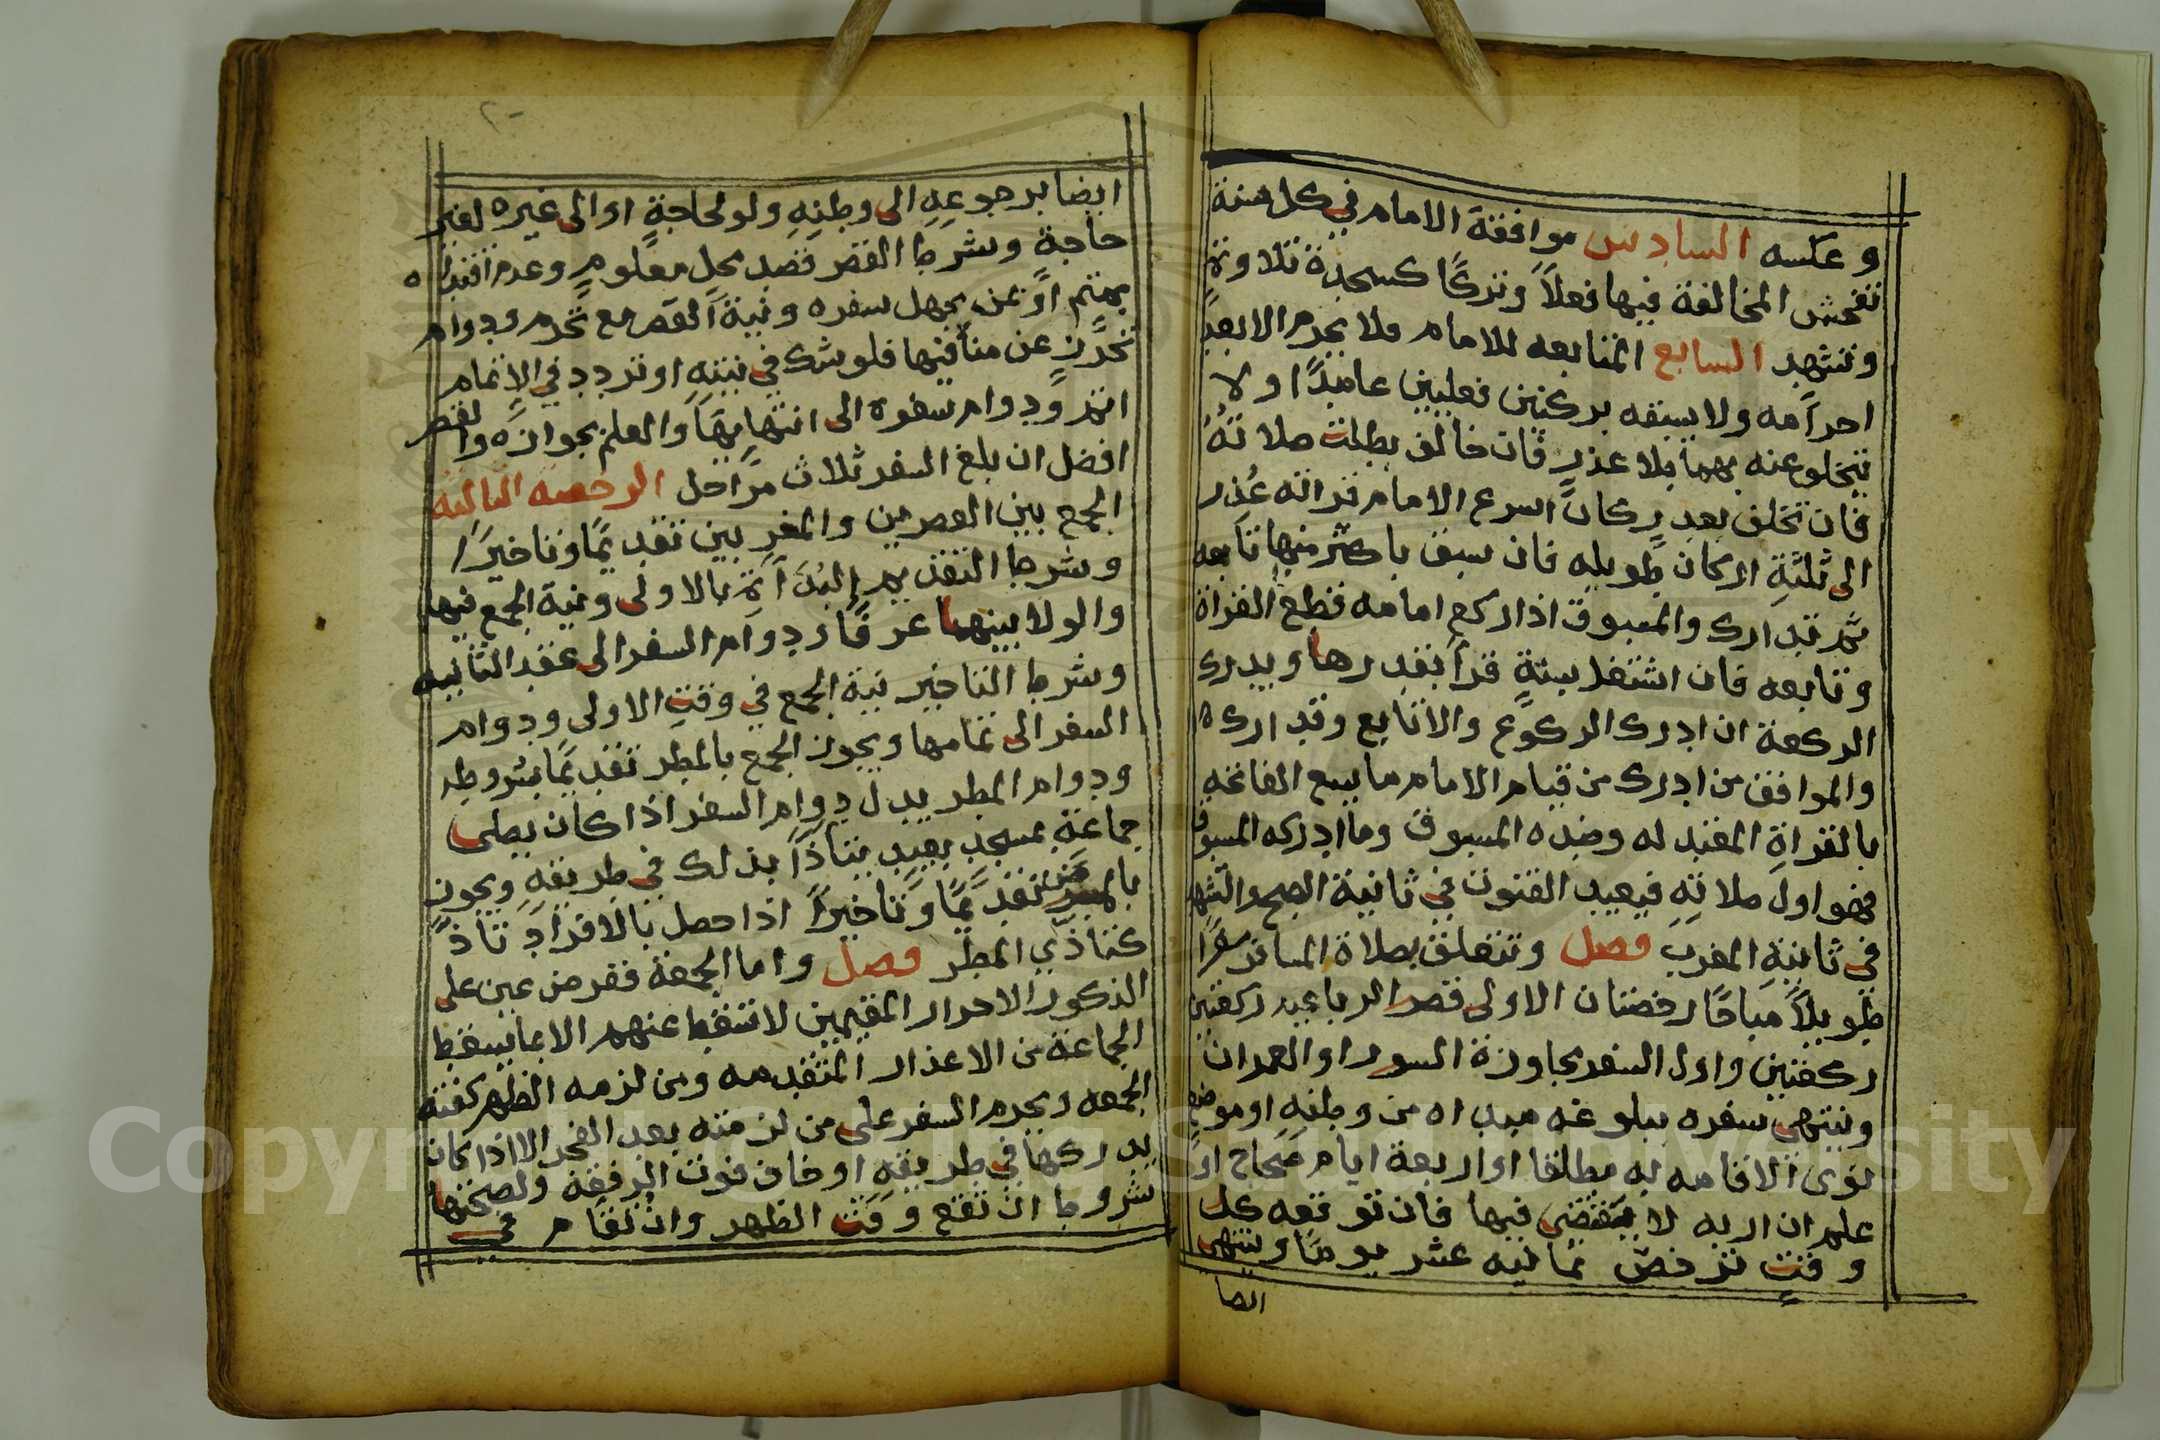 وعكسه السادس موافقة الامام في كل سنة
تفحش المخالفة فيها فعلاً وتركًا كسجدة تلاوة
وتشهد السابع المتابعه للامام فلا يحرم الا بعد
احرامه ولا يسبقه بركنين فعليين عامدًا ولا
يتخلف عنه بهما بلا عذرٍ فان خالف بطلت صلاتهُ
فان تخلف بعذرٍ كانْ اسرع الامام قراته عُذر
الى ثلثةِ اركان طويله فان سبق باكثر منها تابعه
ثم تدارك والمسبوق اذا ركع امامه قطع القراة
وتابعه فان اشتغل بسنةٍ قرأ بقدرها ويدرك
الركعة ان ادرك الركوع والا تابع وتداركه
والموافق من ادرك من قيام الامام ما يسع الفاتحه
بالقراةِ المعتدله وضده المسبوق وما ادركه المسبوق
فهو اول صلاتهِ فيعيد القنوت في ثانية الصبح والتشهد
في ثانية المغرب فصل وتتعلق بصلاة المسافر سفرًا
طويلاً مباحًا رخصتان الاولى قصر الرباعيه ركعتين
ركعتين واول السفر مجاوزة السور او العمران
وينتهي سفره ببلوغه مبداه من وطنهِ او موضع
نوى الاقامه به مطلقا او اربعة ايام صحاح او
علم ان اربه لا ينقضي فيها فان توقعه كل
وقتٍ ترخصّ ثمانيه عشر يومًا وينتهي
ايضا
ايضا برجوعِهِ الى وطنِهِ ولو لحاجةٍ او الى غيره لغير
حاجة وشرط القصر قصد محلٍ معلومٍ وعدم اقتداه
بمتم او بمن يجهل سفره ونية القصر مع تحرم ودوام
تحرّزٍ عن منافيها فلو شك في نيتهِ او تردد في الاتمام
اتم ودوام سفره الى انتهايها والعلم بجوازه والقصر
افضل ان بلغ السفر ثلاث مراحل الرخصه الثانية
الجمع بين العصرين والمغربين تقديمًا وتاخيرًا
وشرط التقديم البُدَآءَة بالاولى ونية الجمع فيها
والولا بينهما عرفًا ودوام السفر الى عقد الثانيه
وشرط التاخير نية الجمع في وقت الاولى ودوام
السفر الى تمامها ويجوز الجمع بالمطر تقديمًا بشروطِهِ
ودوام المطر بدل دوام السفر اذا كان يصلى
جماعة بمسجدٍ بعيدٍ يتاذّا بذلك في طريقهِ ويجوز
بالمرض تقديمًا وتاخيرًا اذا حصل بالافراد تاذٍ
كتاذّي المطر فصل واما الجمعة ففرض عين على
الذكور الاحرار المقيمين لا تسقط عنهم الا بما يسقط
الجماعة من الاعذار المتقدمه ومن لزمه الظهر كفته
الجمعه ويحرم السفر على من لزمته بعد الفجر الا اذا كان
يدركها في طريقهِ او خاف فوت الرفقة ولصحتها
شروط ان تقع وقت الظهر وان تقام في